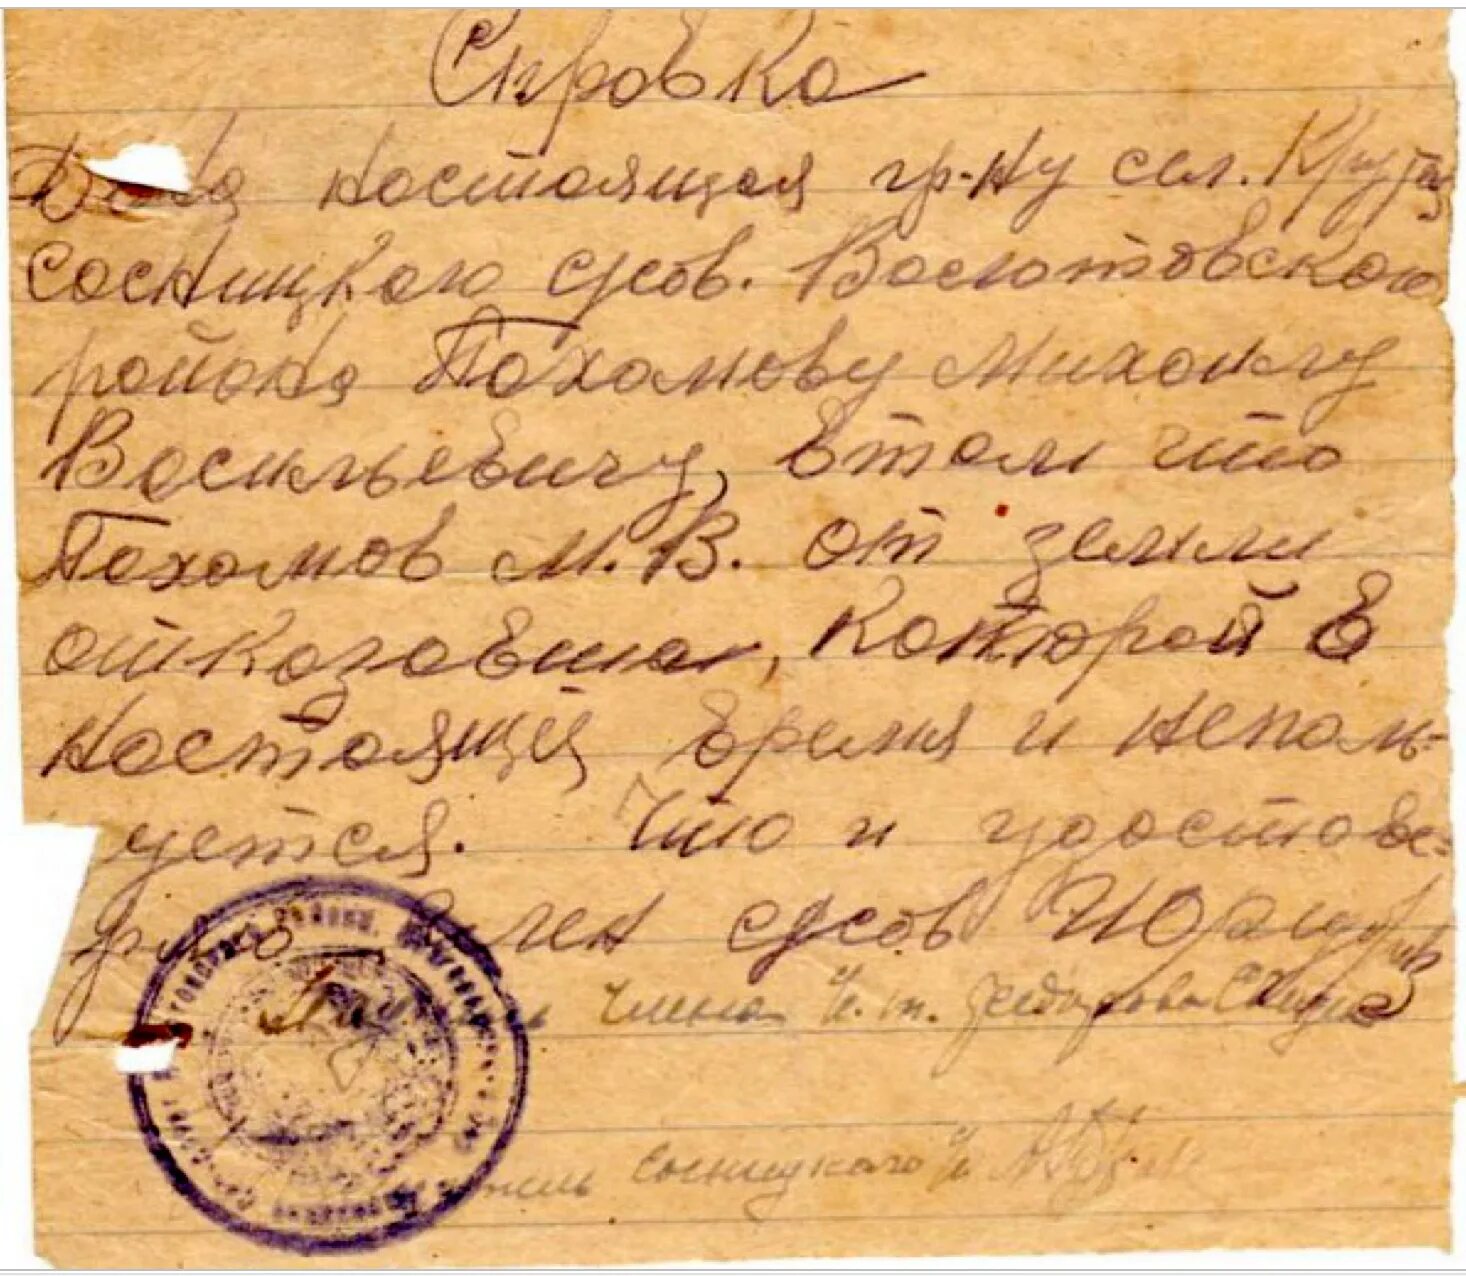 Справка
Дана настоящая гр-ну сел. Крутец
Сосницкого с/сов. Волотовского
района Пахомову Михаилу
Васильевичу, в том что
Пахомов М.В. от земли
отказавша, которой в
настоящие время и неполь-
уется. Что и удостове-
ряю Член с/сов
члена и. т. Федорова
Сосницкого